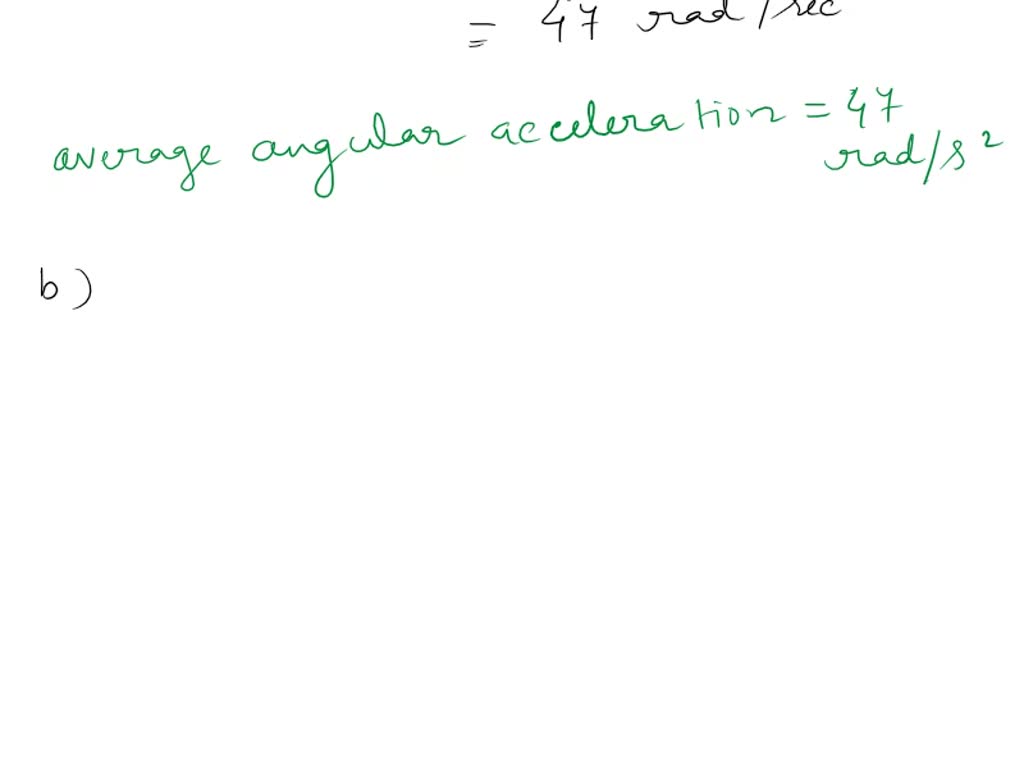 = 47 rad/sec
average angular acceleration = 47
rad/s²
b)